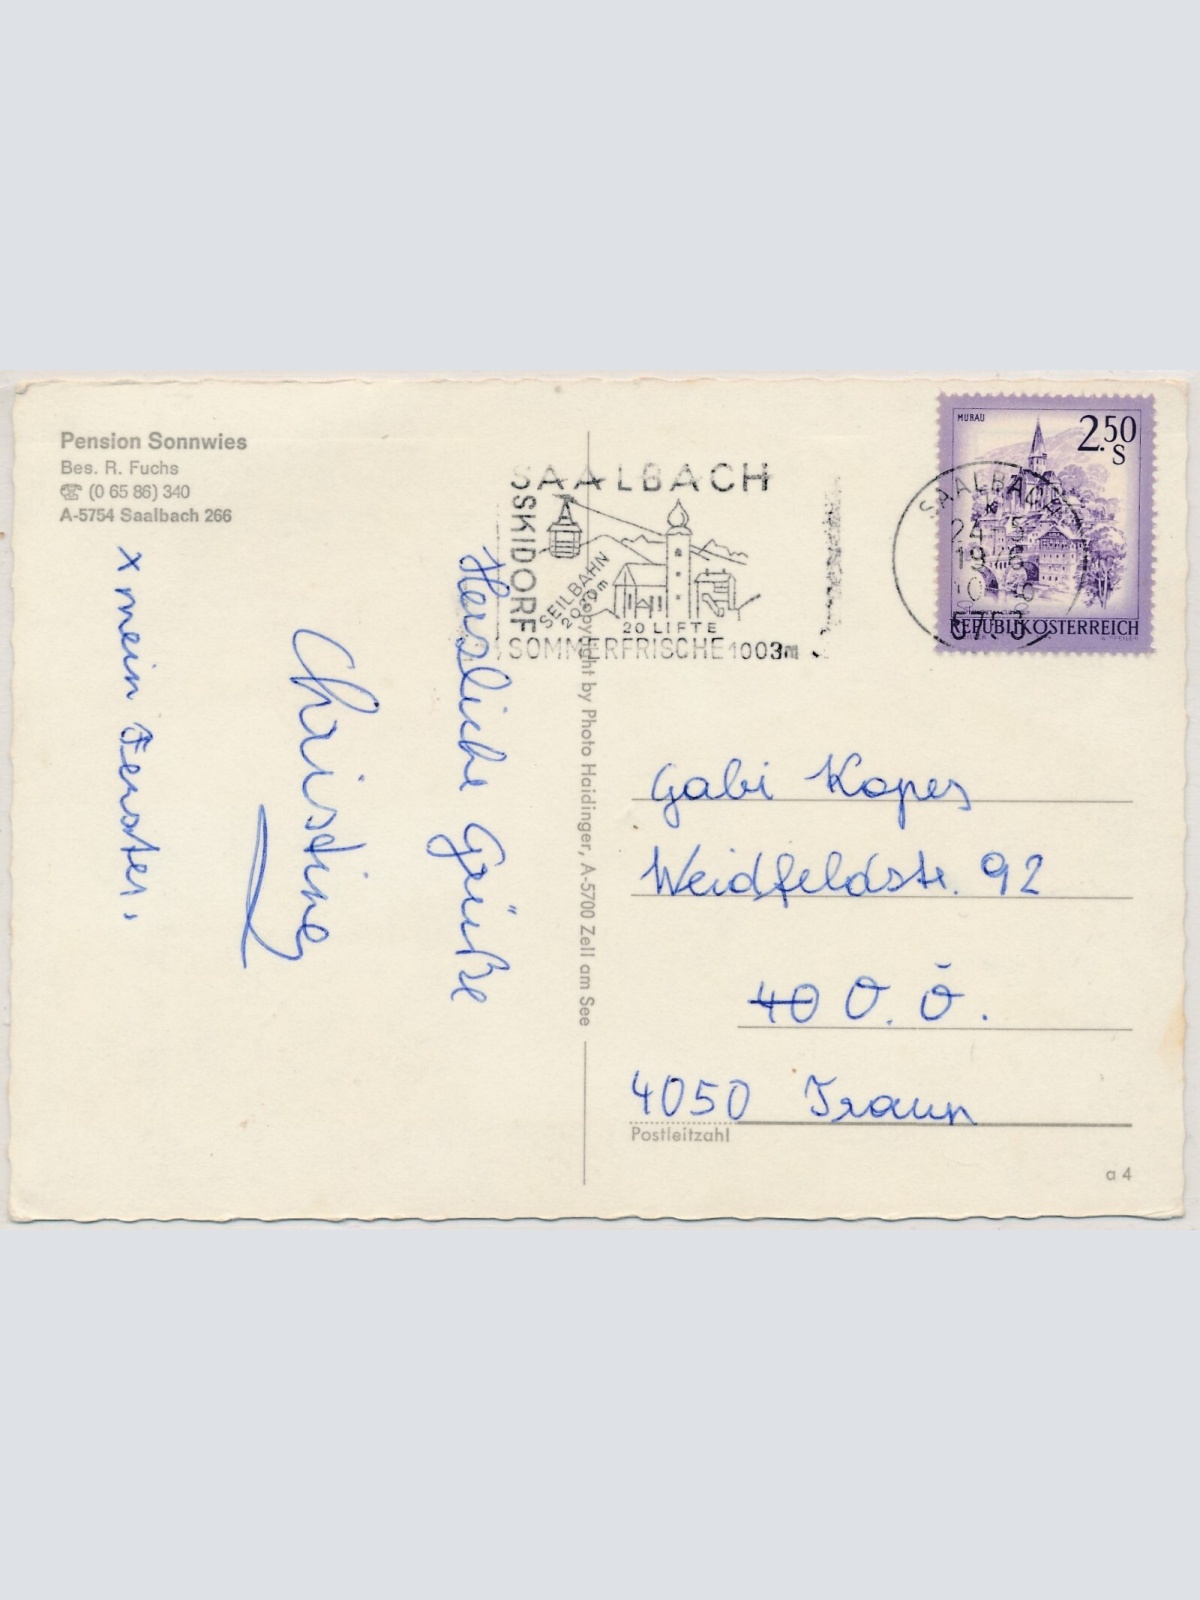 Pension Sonnwies
Bes. R. Fuchs
☎ (0 65 86) 340
A-5754 Saalbach 266
x mein Fenster.
Christine
Herzliche Grüße
Copyright by Photo Haidinger, A-5700 Zell am See
SAALBACH
SKIDORF
SEILBAHN
2070m
20 LIFTE
SOMMERFRISCHE 1003m
MURAU
2.50
S
REPUBLIK ÖSTERREICH
SAALBACH
24. 5
1976
Gabi Kopes
Weidfeldstr. 92
40 O. Ö.
4050 Traun
Postleitzahl
a 4